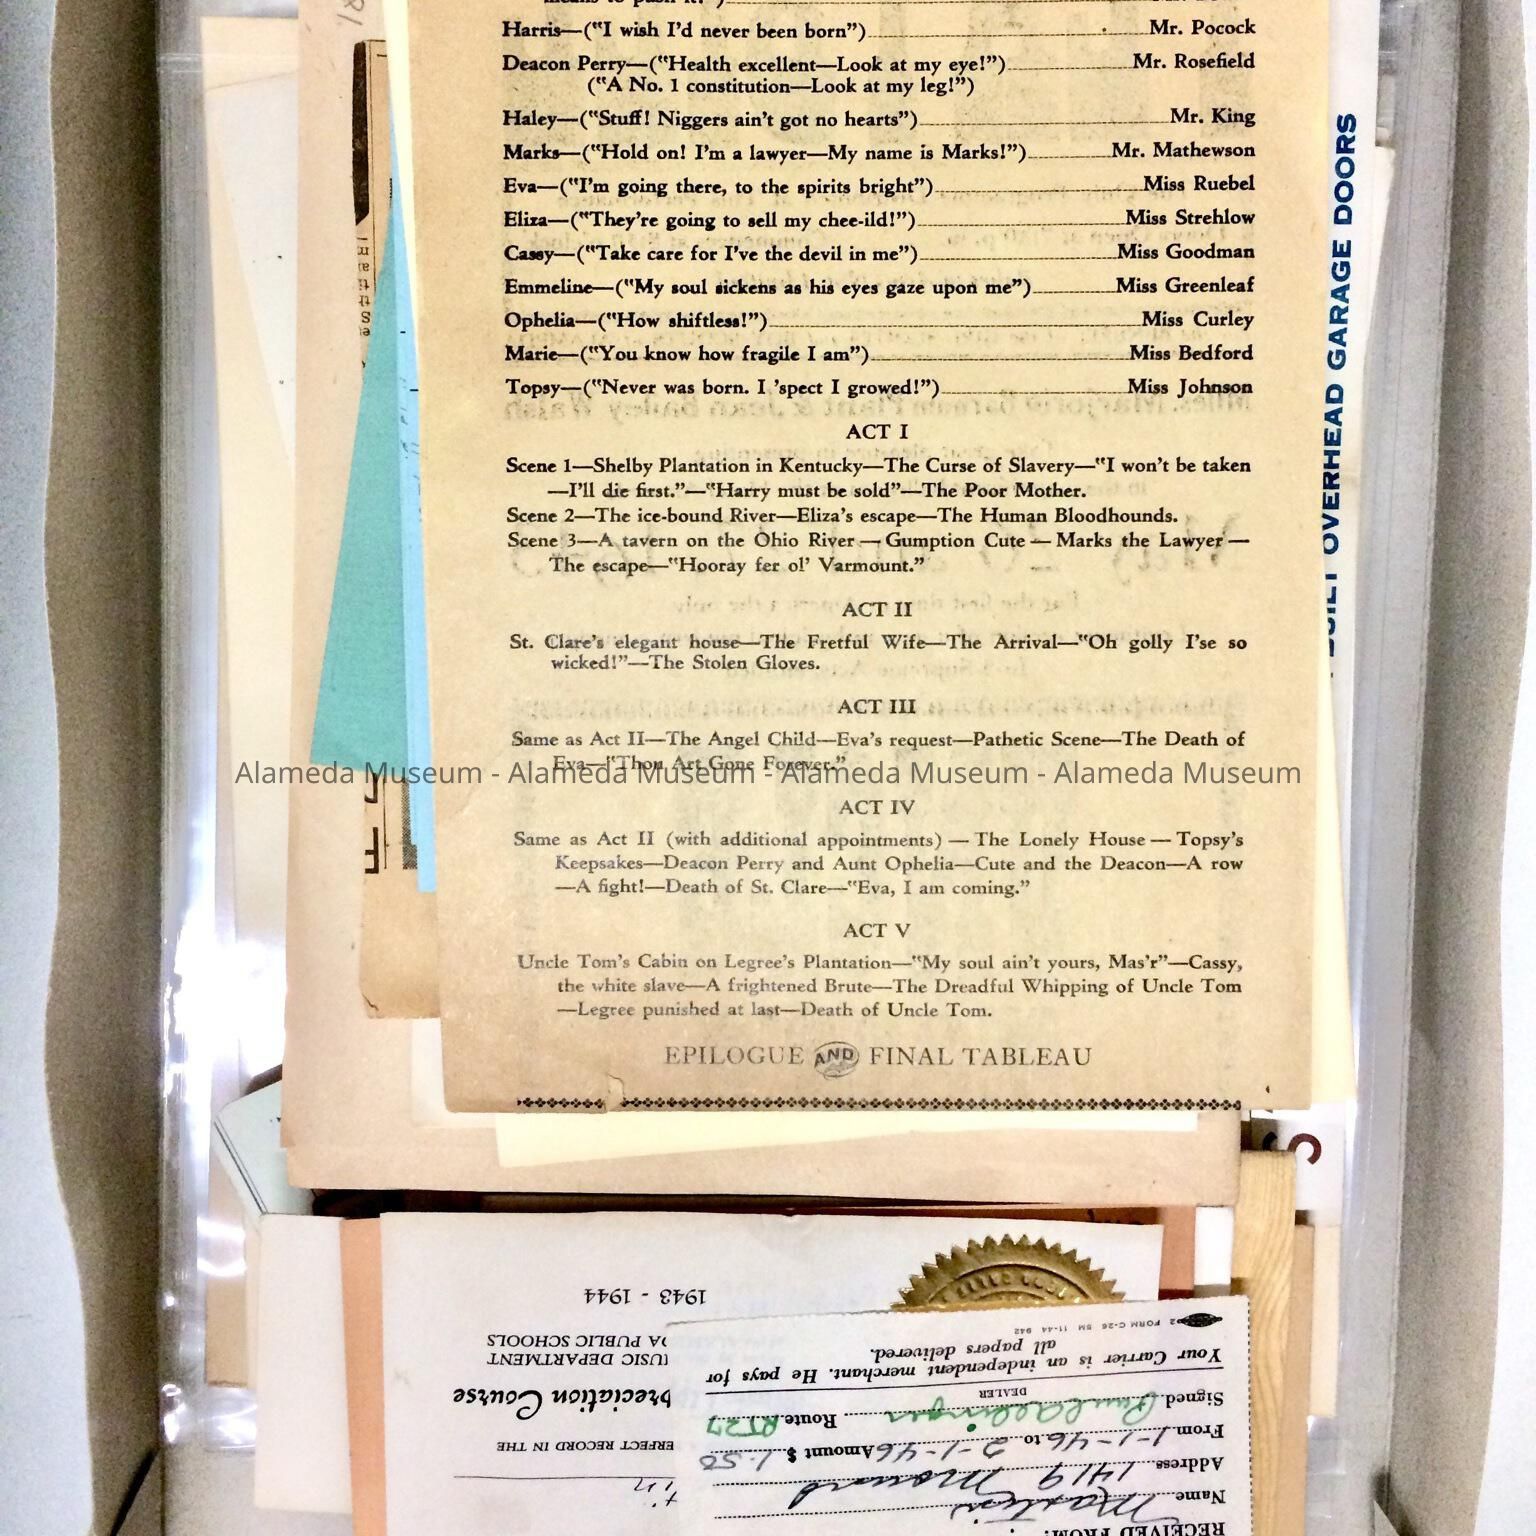 Harris—("I wish I'd never been born") Mr. Pocock
Deacon Perry—("Health excellent—Look at my eye!") Mr. Rosefield
("A No. 1 constitution—Look at my leg!")
Haley—("Stuff! Niggers ain't got no hearts") Mr. King
Marks—("Hold on! I'm a lawyer—My name is Marks!") Mr. Mathewson
Eva—("I'm going there, to the spirits bright") Miss Ruebel
Eliza—("They're going to sell my chee-ild!") Miss Strehlow
Cassy—("Take care for I've the devil in me") Miss Goodman
Emmeline—("My soul sickens as his eyes gaze upon me") Miss Greenleaf
Ophelia—("How shiftless!") Miss Curley
Marie—("You know how fragile I am") Miss Bedford
Topsy—("Never was born. I 'spect I growed!") Miss Johnson
ACT I
Scene 1—Shelby Plantation in Kentucky—The Curse of Slavery—"I won't be taken
—I'll die first."—"Harry must be sold"—The Poor Mother.
Scene 2—The ice-bound River—Eliza's escape—The Human Bloodhounds.
Scene 3—A tavern on the Ohio River—Gumption Cute—Marks the Lawyer—
The escape—"Hooray fer ol' Varmount."
ACT II
St. Clare's elegant house—The Fretful Wife—The Arrival—"Oh golly I'se so
wicked!"—The Stolen Gloves.
ACT III
Same as Act II—The Angel Child—Eva's request—Pathetic Scene—The Death of
Eva—"Thou Art Gone Forever."
Alameda Museum - Alameda Museum - Alameda Museum - Alameda Museum
ACT IV
Same as Act II (with additional appointments)—The Lonely House—Topsy's
Keepsakes—Deacon Perry and Aunt Ophelia—Cute and the Deacon—A row
—A fight!—Death of St. Clare—"Eva, I am coming."
ACT V
Uncle Tom's Cabin on Legree's Plantation—"My soul ain't yours, Mas'r"—Cassy,
the white slave—A frightened Brute—The Dreadful Whipping of Uncle Tom
—Legree punished at last—Death of Uncle Tom.
EPILOGUE AND FINAL TABLEAU
OVERHEAD GARAGE DOORS
RECEIVED FROM:
Name
Address 1419
From 1-1-46 to 2-1-46 Amount $ 1.50
Signed Route RT27
DEALER
Your Carrier is an independent merchant. He pays for
all papers delivered.
FORM C-26 5M 11-44 942
ERFECT RECORD IN THE
preciation Course
USIC DEPARTMENT
DA PUBLIC SCHOOLS
1943 - 1944